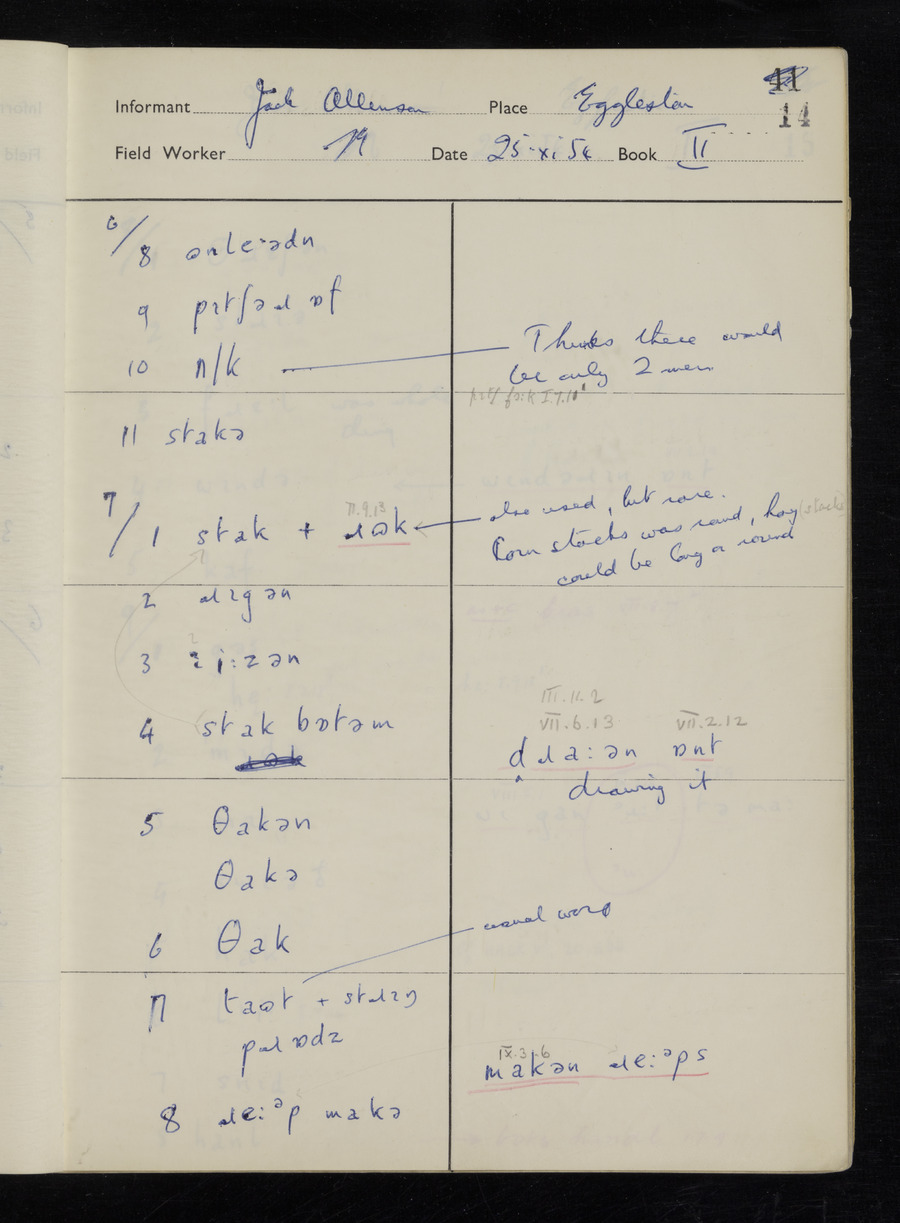 Informant Jack Allenson Place Eggleston 14
Field Worker Date 25·xi·54 Book II
6/
8 ənle·ədn
9 pɪtʃəɹ ɒf
10 n/k Thinks there would
be only 2 men
11 stakə
7/1 stak + ɹʊk also used, but rare.
II.9.13
Corn stacks was round, hay (stacks)
could be long or round
2 ɹɪgən
3 i:zən
4 stak bɒtəm
III.11.2
VII.6.13 VII.2.12
dɹa:ən ɒnt
drawing it
5 θakən
θakə
6 θak
usual word
7 taʊt + stɹɪŋ
pɹɒdz
IX.3.6
makən ɹe:ᵊps
8 ɹe:ᵊp makə